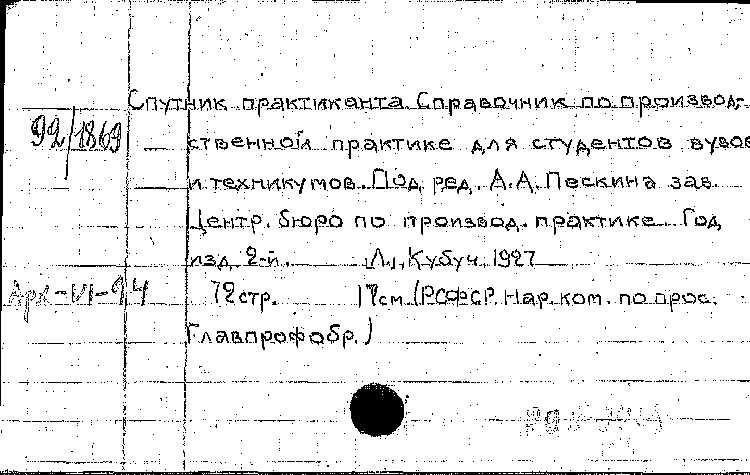 Спутник практиканта. Справочник по производ-
92/1869
ственной практике для студентов вузов
и техникумов. Под ред. А.А. Пескина зав.
Центр. бюро по производ. практике. Год
изд. 2-й. Л., Кубуч, 1927
Арх-VI-94
72 стр. 17 см. (РСФСР. Нар. ком. по прос.
Главпрофобр.)